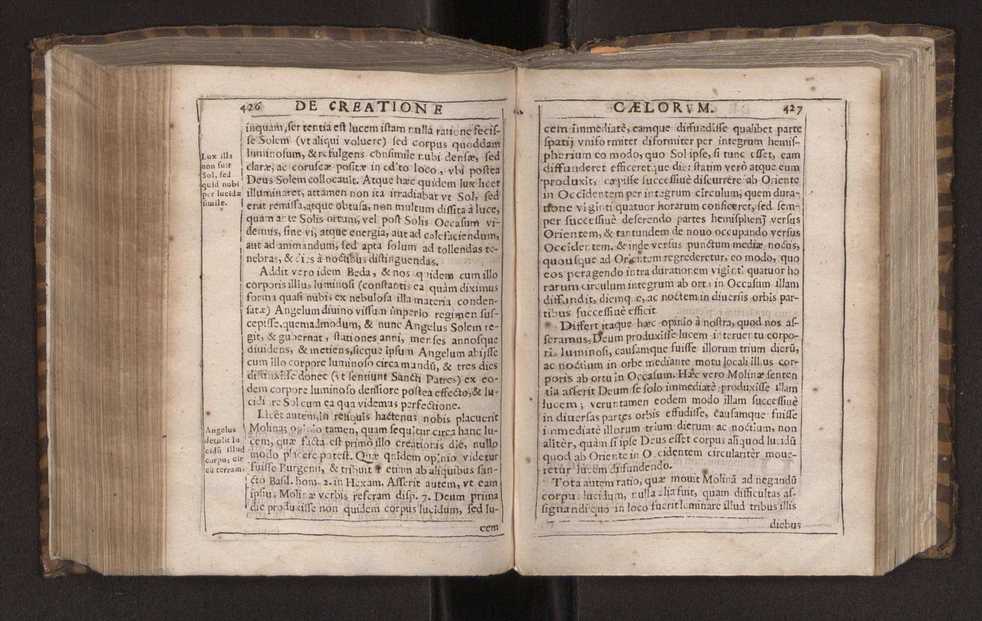 426 DE CREATIONE
inquam, sententia est lucem istam nulla ratione fecis-
se Solem (vt aliqui voluere) sed corpus quoddam
luminosum, & refulgens consimile nubi densæ, sed
claræ, ac coruscæ positæ in eo loco, vbi postea
Deus Solem collocauit. Atque hæc quidem lux licet
illuminaret, attamen non ita irradiabat vt Sol, sed
erat remissa, atque obtusa, non multum dissita à luce,
quam ante Solis ortum, vel post Solis Occasum vi-
demus, sine vi, atque energia, aut ad calefaciendum,
aut ad animandum, sed apta solum ad tollendas te-
nebras, & dies à noctibus distinguendas.
Lux illa
non fuit
Sol, sed
quid nubi
per lucida
simile.
Addit vero idem Beda, & nos quidem cum illo
corporis illius luminosi (constantis ea quàm diximus
forma quasi nubis ex nebulosa illa materia conden-
satæ) Angelum diuino vissum imperio regimen sus-
cepisse, quemadmodum, & nunc Angelus Solem re-
git, & gubernat, stationes anni, menses annosque
diuidens, & metiens, sicque ipsum Angelum abijsse
cum illo corpore luminoso circa mandũ, & tres dies
distinxisse donec (vt sentiunt Sancti Patres) ex eo-
dem corpore luminoso densiore postea effecto, & lu-
cidiore Sol cum ea qua videmus perfectione.
Licet autem, in reliquis hactenus nobis placuerit
Molinæ opinio tamen, quam sequitur circa hanc lu-
cem, quæ facta est primo illo creationis die, nullo
modo placere potest. Quæ quidem opinio videtur
fuisse Eurgenij, & tribuit etiam ab aliquibus san-
cto Basil. hom. 2. in Hexam. Asserit autem, vt eam
ipsius Molinæ verbis referam disp. 7. Deum prima
die produxisse non quidem corpus lucidum, sed lu-
cem
Angelus
detulit lu
cidũ illud
corpus, cir
ca terram.
CÆLORVM. 427
cem immediatè, eamque diffudisse qualibet parte
spatij vniformiter diformiter per integrum hemis-
pherium eo modo, quo Sol ipse, si tunc esset, eam
diffunderet efficeretque die: statim verò atque eum
produxit, cæpisse successiuè discurrere ab Oriente
in Occidentem per integrum circulum, quem dura-
tione viginti quatuor horarum conficeret, sed sem-
per successiuè deserendo partes hemispherij versus
Orientem, & tantundem de nouo occupando versus
Occidentem, & inde versus punctum mediæ noctis,
quousque ad Orientem regrederetur, eo modo, quo
eos peragendo intra durationem viginti quatuor ho
rarum circulum integrum ab ortu in Occasum illam
diffundit, diemque, ac noctem in diuersis orbis par-
tibus successiuè efficit.
Differt itaque hæc opinio à nostra, quod nos as-
seramus, Deum produxisse lucem interuentu corpo-
ris luminosi, causamque fuisse illorum trium dierũ,
ac noctium in orbe mediante motu locali illius cor-
poris ab ortu in Occasum. Hæc vero Molinæ senten
tia asserit Deum se solo immediatè produxisse illam
lucem; veruntamen eodem modo illam successiuè
in diuersas partes orbis effudisse, causamque fuisse
immediatè illorum trium dierum ac noctium, non
alitèr, quàm si ipse Deus esset corpus aliquod lucidũ
quod ab Oriente in Occidentem circularitèr moue-
retur lucem diffundendo.
Tota autem ratio, quæ mouit Molinã ad negandũ
corpus lucidum, nulla alia fuit, quam difficultas as-
signandi quo in loco fuerit luminare illud tribus illis
diebus